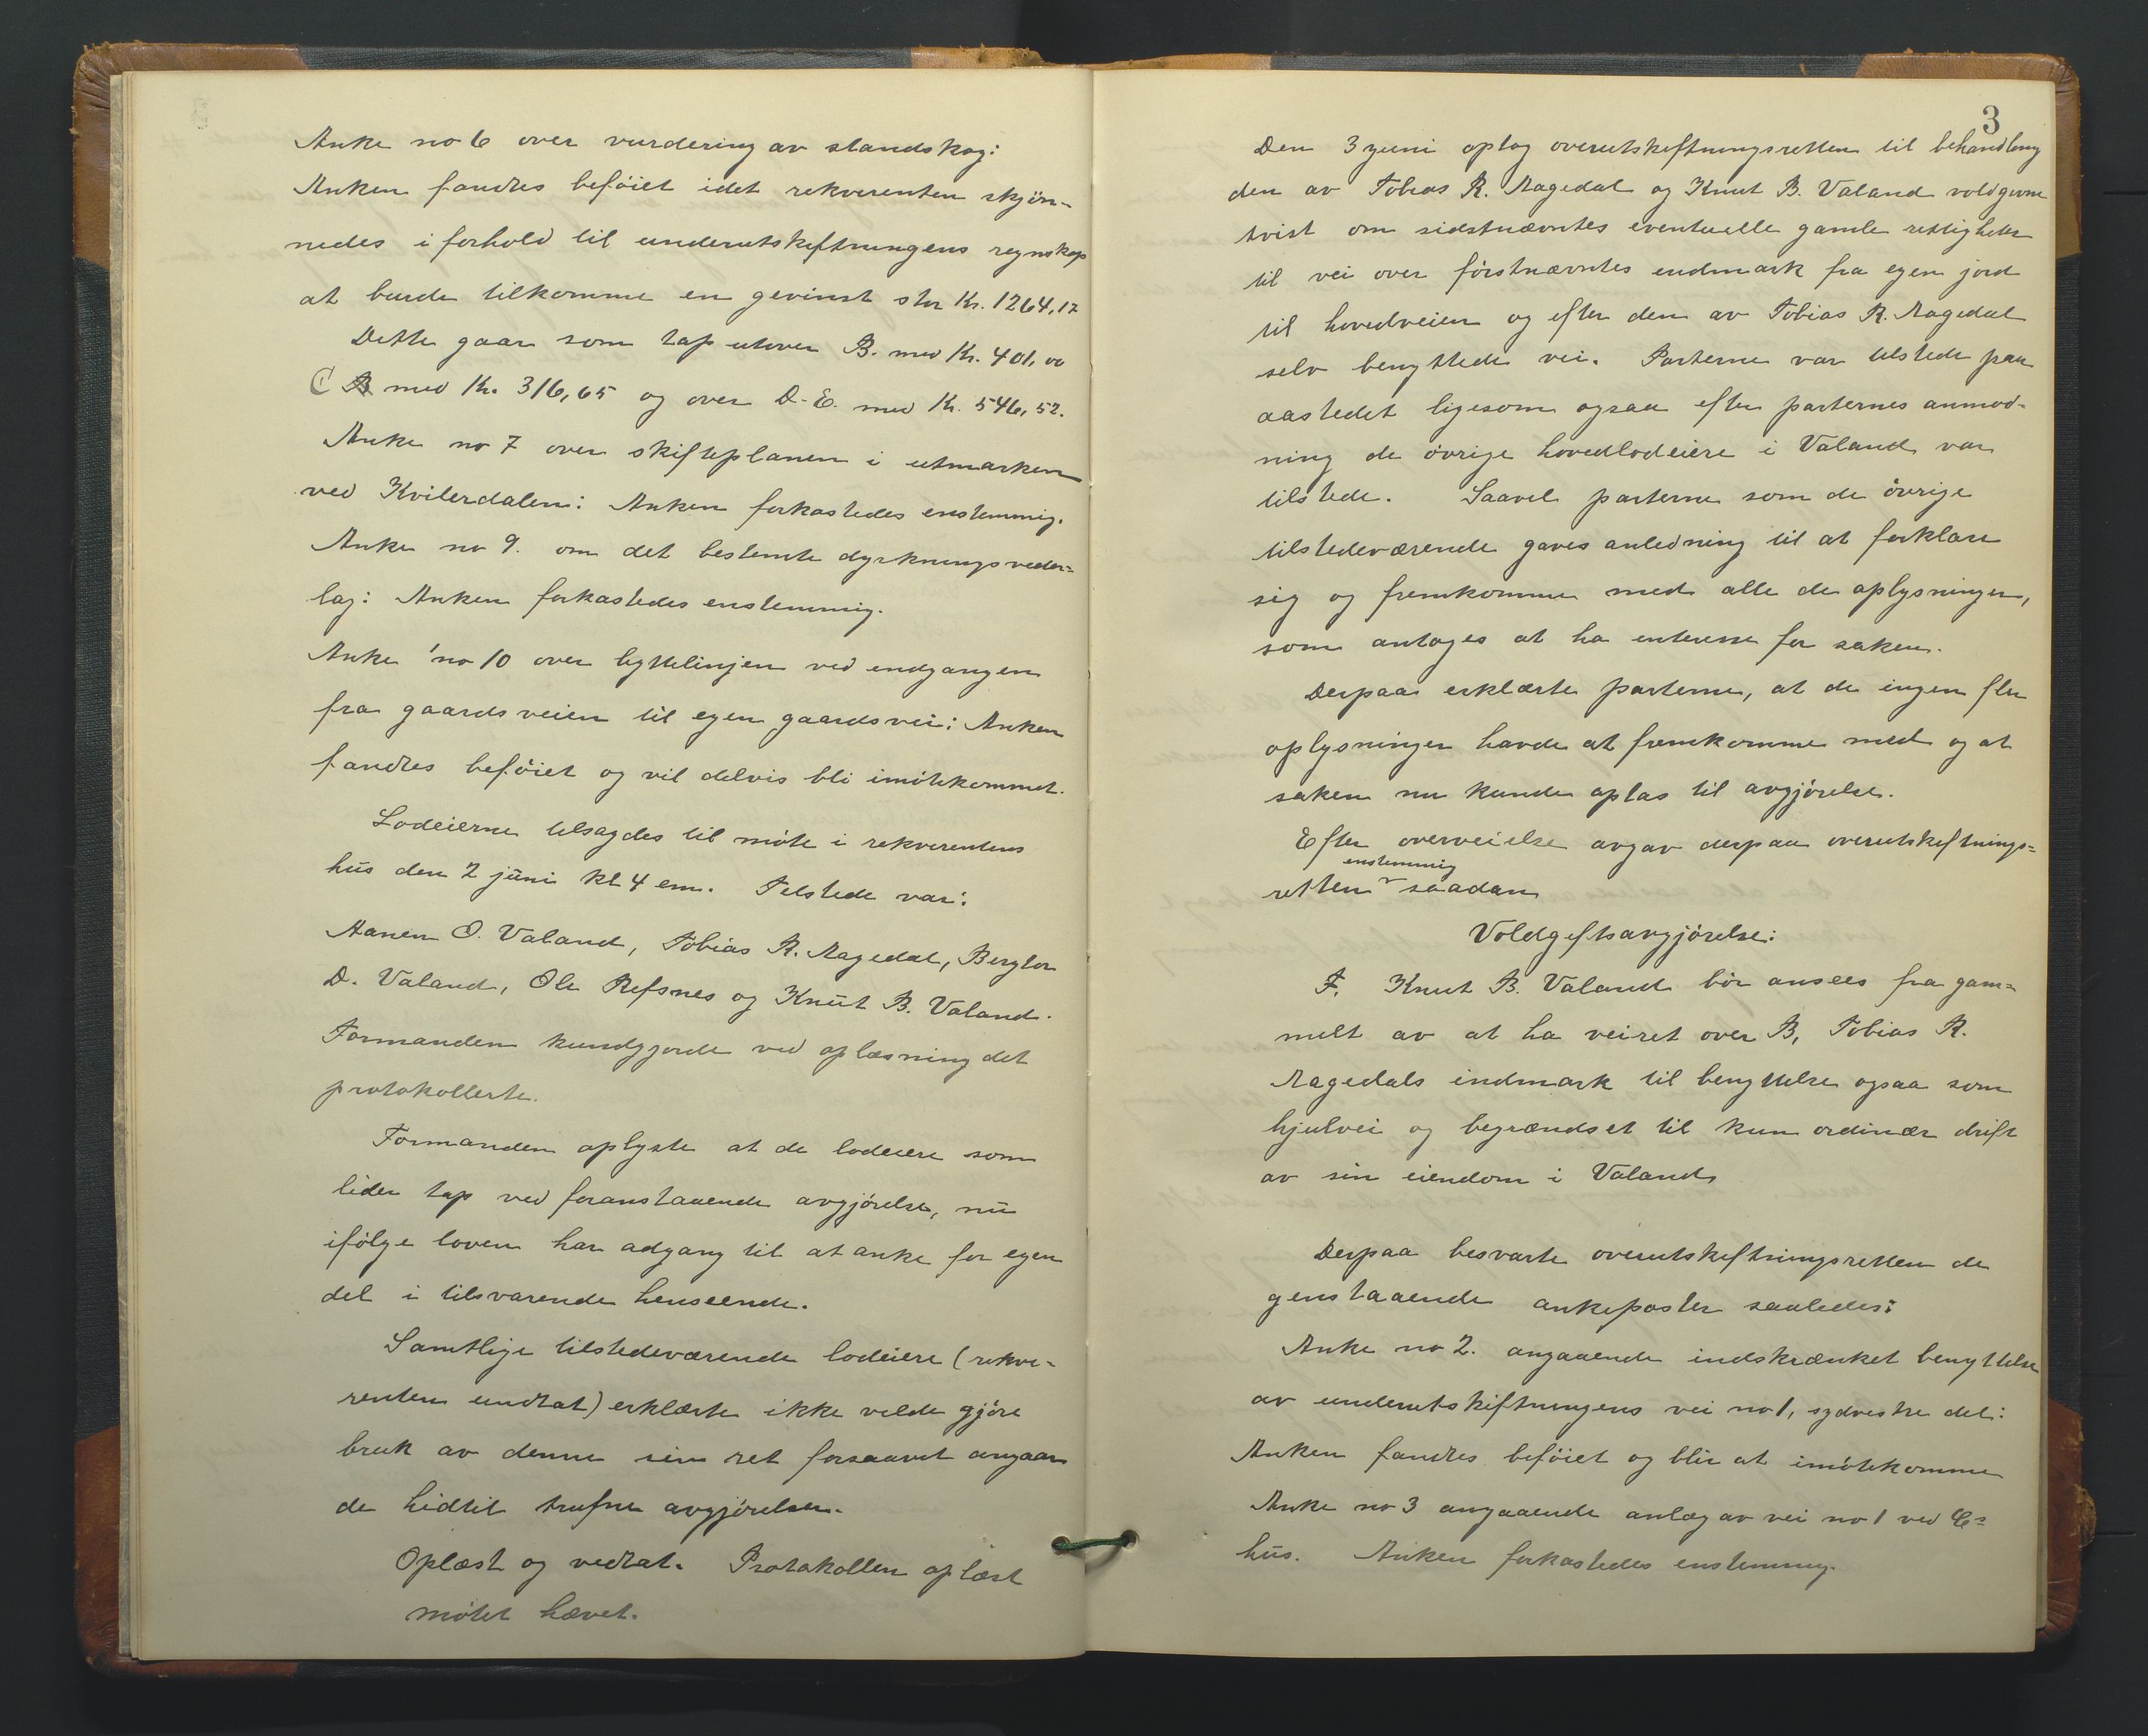 Anke no 6 over vurdering av standskog:
Anken fandtes beföiet idet rekvirenten skjön-
nedes i forhold til underutskiftningens regnskap
at burde tilkomme en gevinst stor Kr. 1264,17
Dette gaar som tap utover B. med Kr. 401,00
C med Kr. 316,65 og over D-E. med Kr. 546,52.
Anke no 7 over skifteplanen i utmarken
ved Kvilerdalen: Anken forkastedes enstemmig.
Anke no 9. om det bestemte dyrkningsveder-
lag: Anken forkastedes enstemmig.
Anke no 10 over byttelinjen ved indgangen
fra gaardsveien til egen gaardsvei: Anken
fandtes beföiet og vil delvis bli imötekommet.
Lodeierne tilsagdes til möte i rekvirentens
hus den 2 juni kl 4 em. Tilstede var:
Aanen O. Valand, Tobias R. Aagedal, Bergtor
D. Valand, Ole Refsnes og Knut B. Valand.
Formanden kundgjorde ved oplæsning det
protokollerte.
Formanden oplyste at de lodeiere som
lider tap ved foranstaaende avgjörelse, nu
ifölge loven har adgang til at anke for egen
del i tilsvarende henseende.
Samtlige tilstedeværende lodeiere (rekvi-
renten undtat) erklærte ikke vilde gjöre
bruk av denne sin ret forsaavit angaar
de hidtil trufne avgjörelser.
Oplæst og vedtat. Protokollen oplæst
mötet hævet.
3
Den 3 juni optog overutskiftningsretten til behandling
den av Tobias R. Aagedal og Knut B. Valand voldgivne
tvist om sidstnævntes eventuelle gamle rettigheter
til vei over förstnævntes indmark fra egen jord
til hovedveien og efter den av Tobias R. Aagedal
selv benyttede vei. Parterne var tilstede paa
aastedet ligesom ogsaa efter parternes anmod-
ning de övrige hovedlodeiere i Valand var
tilstede. Saavel parterne som de övrige
tilstedeværende gaves anledning til at forklare
sig og fremkomme med alle de oplysninger,
som antoges at ha interesse for saken.
Derpaa erklærte parterne, at de ingen flere
oplysninger havde at fremkomme med og at
saken nu kunde optas til avgjörelse.
Efter overveielse avgav derpaa overutskiftnings-
retten enstemmig saadan
Voldgiftsavgjörelse:
F. Knut B. Valand bör ansees fra gam-
melt av at ha veiret over B, Tobias R.
Aagedals indmark til benyttelse ogsaa som
hjulvei og begrændset til kun ordinær drift
av sin eiendom i Valand
Derpaa besvarte overutskiftningsretten de
genstaaende ankeposter saaledes:
Anke no 2. angaaende indskrænket benyttelse
av underutskiftningens vei no 1, sydvestre del:
Anken fandtes beföiet og blir at imötekomme
Anke no 3 angaaende anlæg av vei no 1 ved
hus. Anken forkastedes enstemmig.